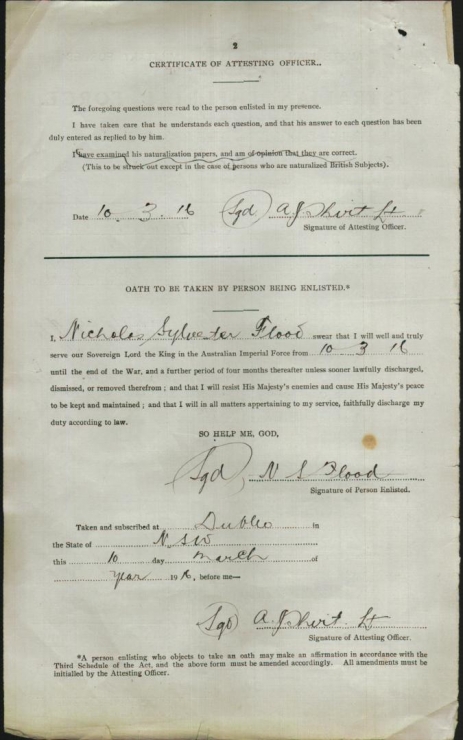 2
CERTIFICATE OF ATTESTING OFFICER..
The foregoing questions were read to the person enlisted in my presence.
I have taken care that he understands each question, and that his answer to each question has been
duly entered as replied to by him.
I have examined his naturalization papers, and am of opinion that they are correct.
(This to be struck out except in the case of persons who are naturalized British Subjects).
Date 10 . 3 . 16 Sgd A. J. Lt
Signature of Attesting Officer.
OATH TO BE TAKEN BY PERSON BEING ENLISTED.*
I, Nicholas Sylvester Flood swear that I will well and truly
serve our Sovereign Lord the King in the Australian Imperial Force from 10 3 16
until the end of the War, and a further period of four months thereafter unless sooner lawfully discharged,
dismissed, or removed therefrom ; and that I will resist His Majesty's enemies and cause His Majesty's peace
to be kept and maintained ; and that I will in all matters appertaining to my service, faithfully discharge my
duty according to law.
SO HELP ME, GOD,
Sgd N S Flood
Signature of Person Enlisted.
Taken and subscribed at Dubbo in
the State of N.SW
this 10 day March of
Year 1916, before me—
Sgd A. J. Lt
Signature of Attesting Officer.
*A person enlisting who objects to take an oath may make an affirmation in accordance with the
Third Schedule of the Act, and the above form must be amended accordingly. All amendments must be
initialled by the Attesting Officer.